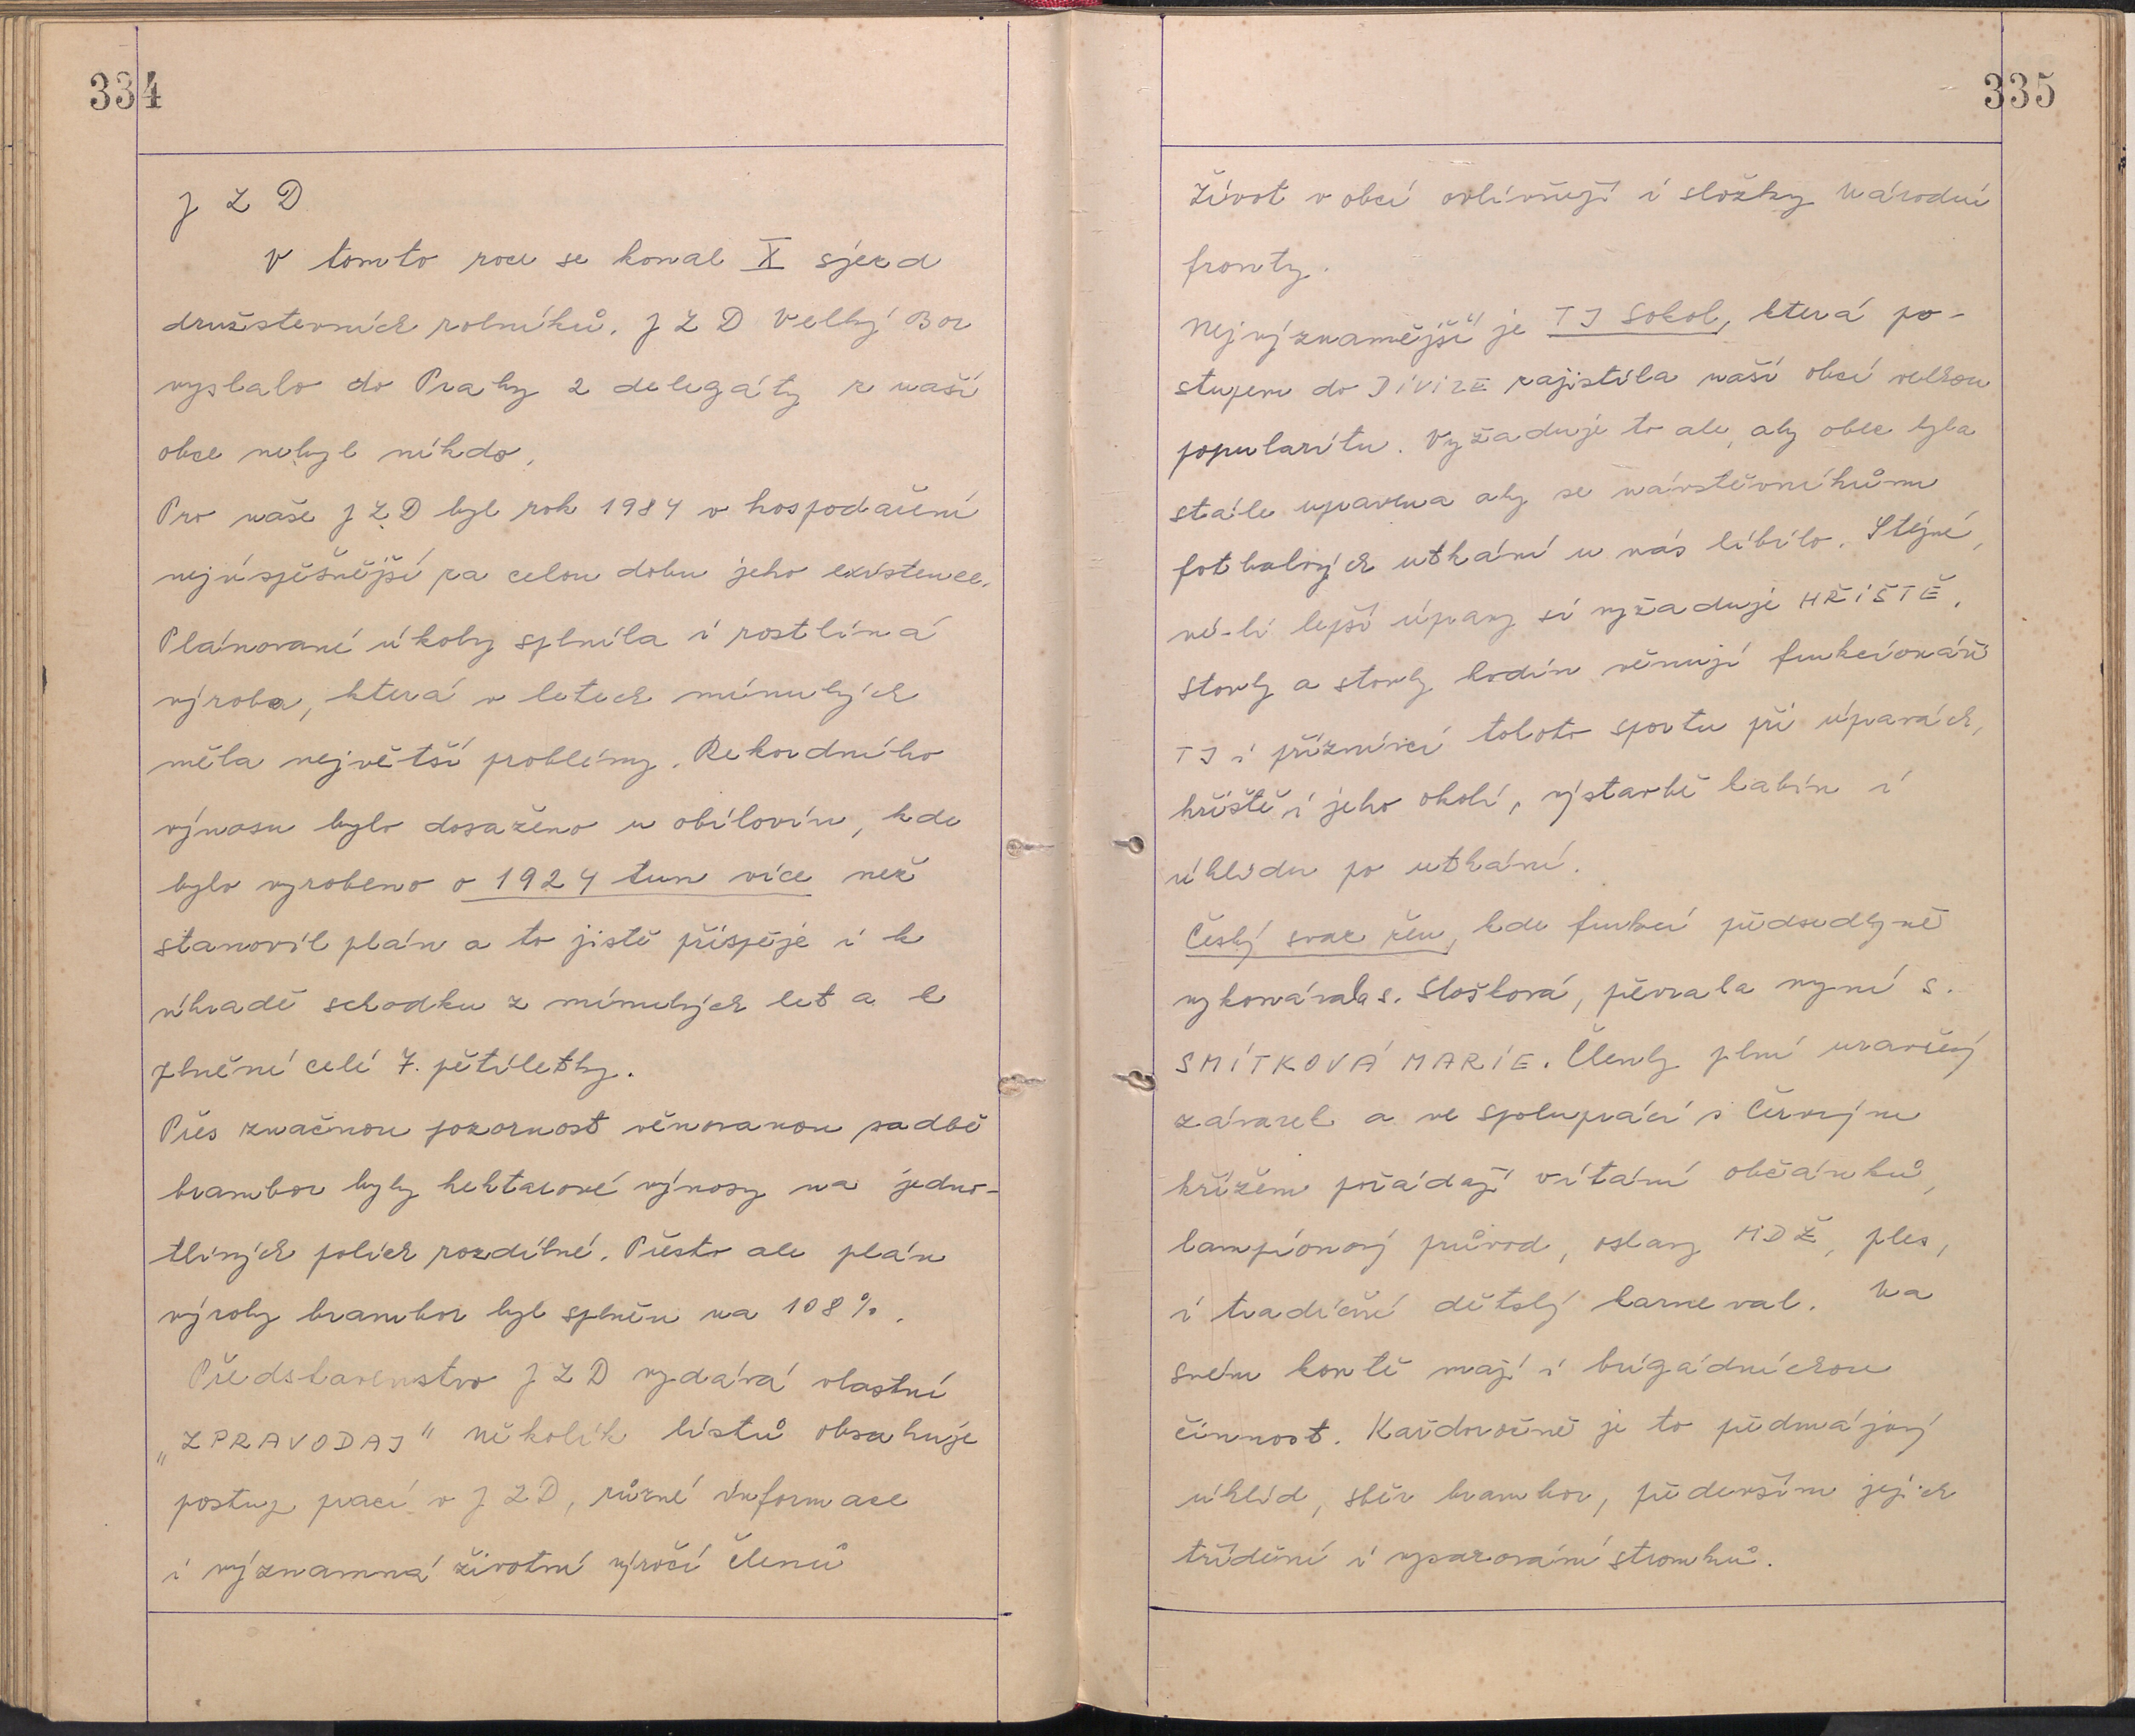 334
J Z D
V tomto roce se konal X sjezd
družstevních rolníků. J Z D Velký Bor
vyslalo do Prahy 2 delegáty z naší
obce nebyl nikdo.
Pro naše J Z D byl rok 1984 v hospodaření
nejúspěšnější za celou dobu jeho existence.
Plánované úkoly splnila i rostliná
výroba, která v letech minulých
měla největší problémy. Rekordního
výnosu bylo dosaženo u obilovin, kde
bylo vyrobeno o 1924 tun více než
stanovil plán a to jistě přispěje i k
úhradě schodku z minulých let a k
plnění celé 7. pětiletky.
Přes značnou pozornost věnovanou sadbě
brambor byly hektarové výnosy na jedno-
tlivých polích rozdílné. Přesto ale plán
výroby brambor byl splněn na 108%.
Představenstvo J Z D vydává vlastní
„ZPRAVODAJ" několik listů obsahuje
postup prací v J Z D, různé informace
i významná životní výročí členů
335
Život v obci ovlivňují i složky Národní
fronty.
Nejvýznamější je TJ Sokol, která po-
stupem do DiViZE zajistila naší obci velkou
popularitu. Vyžaduje to ale, aby obec byla
stále upravena aby se návštěvníkům
fotbalových utkání u nás líbilo. Stejné,
né-li lepší úpravy si vyžaduje HŘiŠTĚ.
Stovky a stovky hodin věnují funkcionáři
TJ i příznivci tohoto sportu při úpravách,
hřiště i jeho okolí, výstavbě kabin i
úklidu po utkání.
Český svaz žen, kde funkci předsedkyně
vykonávala s. Slošková, převzala nyní s.
SMÍTKOVÁ MARiE. Členky plní uzavřený
závazek a ve spolupráci s Červeným
křížem pořádají vítání občánků,
lampionový průvod, oslavy MDŽ, ples,
i tradiční dětský karneval. Na
svém kontě mají i brigádnickou
činnost. Každoročně je to předmájový
úklid, sběr brambor, především jejich
třídění i vysazování stromků.